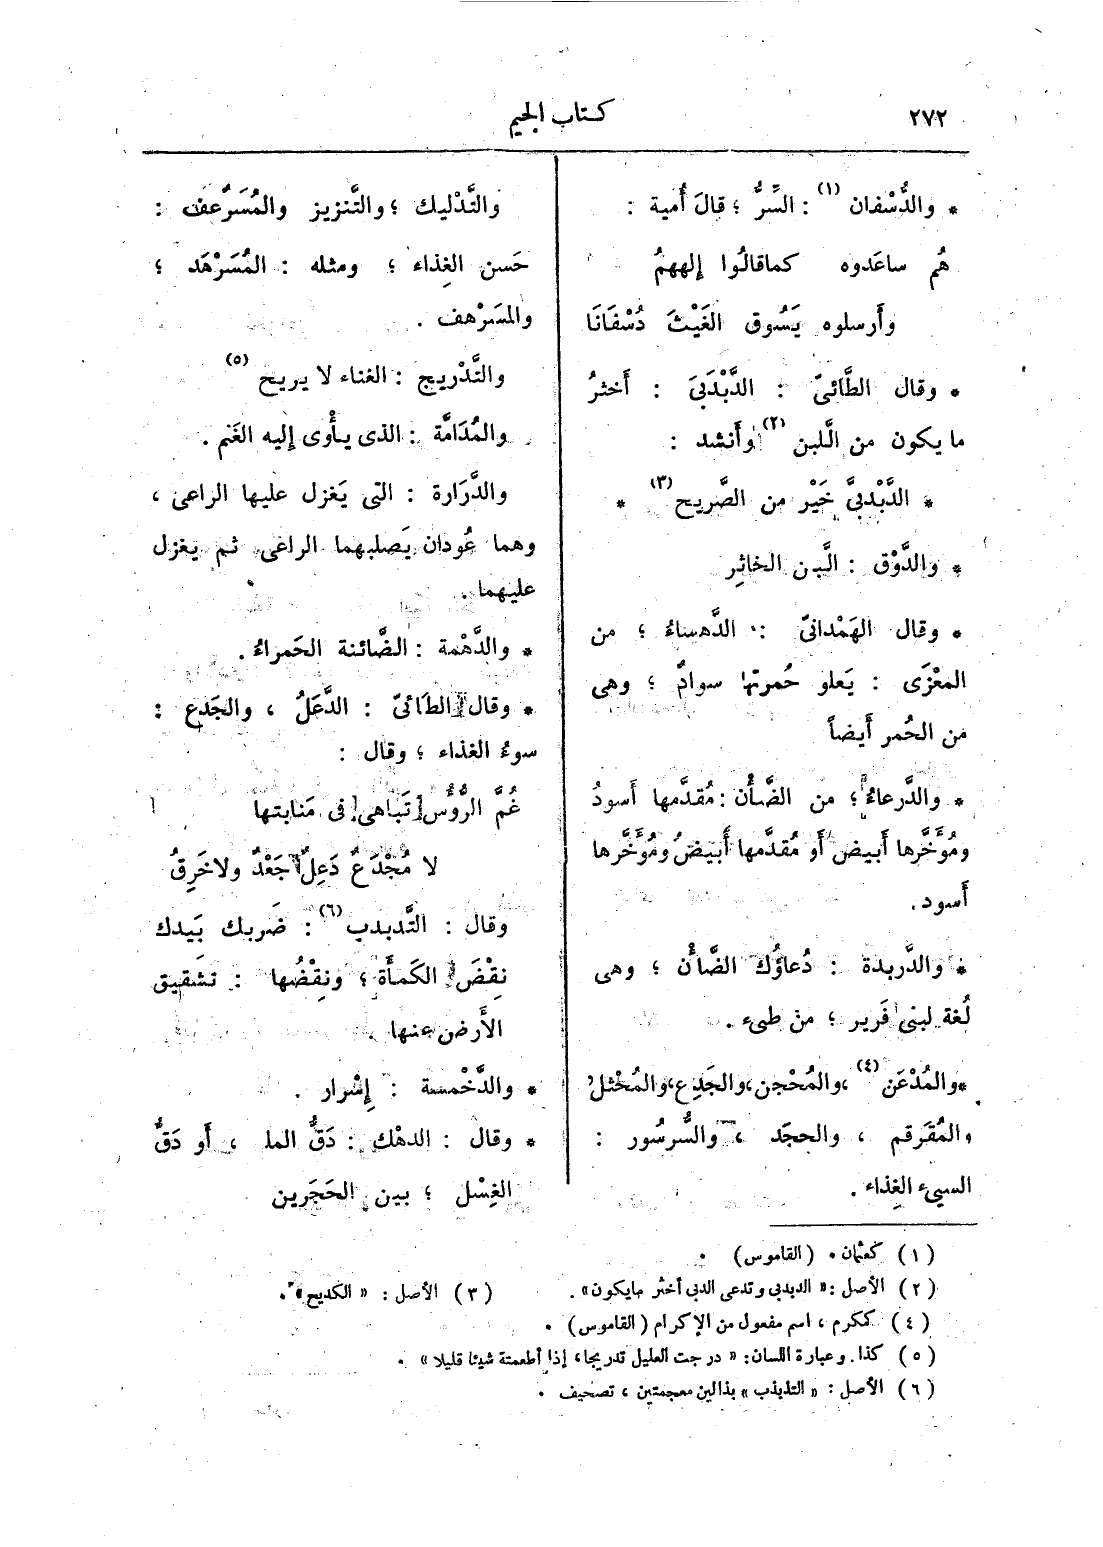 ٢٧٢
كتاب الجيم
* والدُّسْفان (١) : السِّرُّ ؛ قالَ أُمية :
هُم ساعَدوه كماقالُوا إلههمُ
وأَرسلوه يَسُوق الغَيْثَ دُسْفَانَا
* وقال الطَّائىّ : الدَّبْدَبَىَ : أَخثرُ
ما يكون من الَّلبن (٢) وأَنشد :
* الدَّبْدبىَّ خَيْر من الصَّريح (٣) *
* والدَّوْق : الَّبن الخاثِر
* وقال الهَمْدانىّ : الدَّهساءُ ؛ من
المعْزَى : يَعلو حُمرتها سوادٌ ؛ وهى
من الحُمر أَيضاً
* والدَّرعاءُ ؛ من الضَّأْن : مُقدَّمها أَسودُ
ومُؤَخَّرها أَبيض أَو مُقدَّمها أَبيضُ ومُؤَخَّرها
أَسود .
* والدَّربدة : دُعاؤُك الضَّأْن ؛ وهى
لُغة لبنى فَرير ؛ من طىء .
* والمُدْعَن (٤) ، والمُحْجن ، والجَدِع ، والمُحْثل ،
والمُقَرقم ، والحجَد ، والسُّرسُور :
السيىء الغِذاء .
والتَّدْليك ؛ والتَّنزيز والمُسَرْعف :
حَسن الغِذاء ؛ ومثله : المُسَرْهَد ؛
والمسَرْهف .
والتَّدْريج : الغناء لا يريح (٥)
والمُدَامَّة : الذى يأْوى إليه الغَنم .
والدَّرَارة : التى يَغزل عليها الراعى ،
وهما عُودان يَصلبهما الراعى ثم يغزل
عليهما .
* والدَّهْمة : الضَّائنة الحَمراءُ .
* وقال الطَائىّ : الدَّعَلُ ، والجَدَع :
سوءُ الغذاء ؛ وقال :
غُمَّ الرُّؤُس [تَباهى] فى مَنابتها
لا مُجْدَعٌ دَعِلٌ جَعْدٌ ولاخَرِقُ
وقال : التَّدبدب (٦) : ضَربك بَيدك
نِقْضَ الكَمأَة ؛ ونِقْضُها : تشقيق
الأَرض عنها .
* والدَّخْمسة : إِسْرار .
* وقال : الدهْك : دَقُّ الملـ ، أَو دَقُّ
الغِسْل ؛ بين الحَجَرين
(١) كعثمان . (القاموس) .
(٢) الأصل : « الدبدبى وتدعى الدبى أخثر مايكون» .
(٣) الأصل : « الكديح» .
(٤) ككرم ، اسم مفعول من الإكرام (القاموس) .
(٥) كذا . وعبارة اللسان: « درجت العليل تدريجا، إذا أطعمتة شيئا قليلا» .
(٦) الأصل : « التذبذب » بذالين معجمتين ، تصحيف .